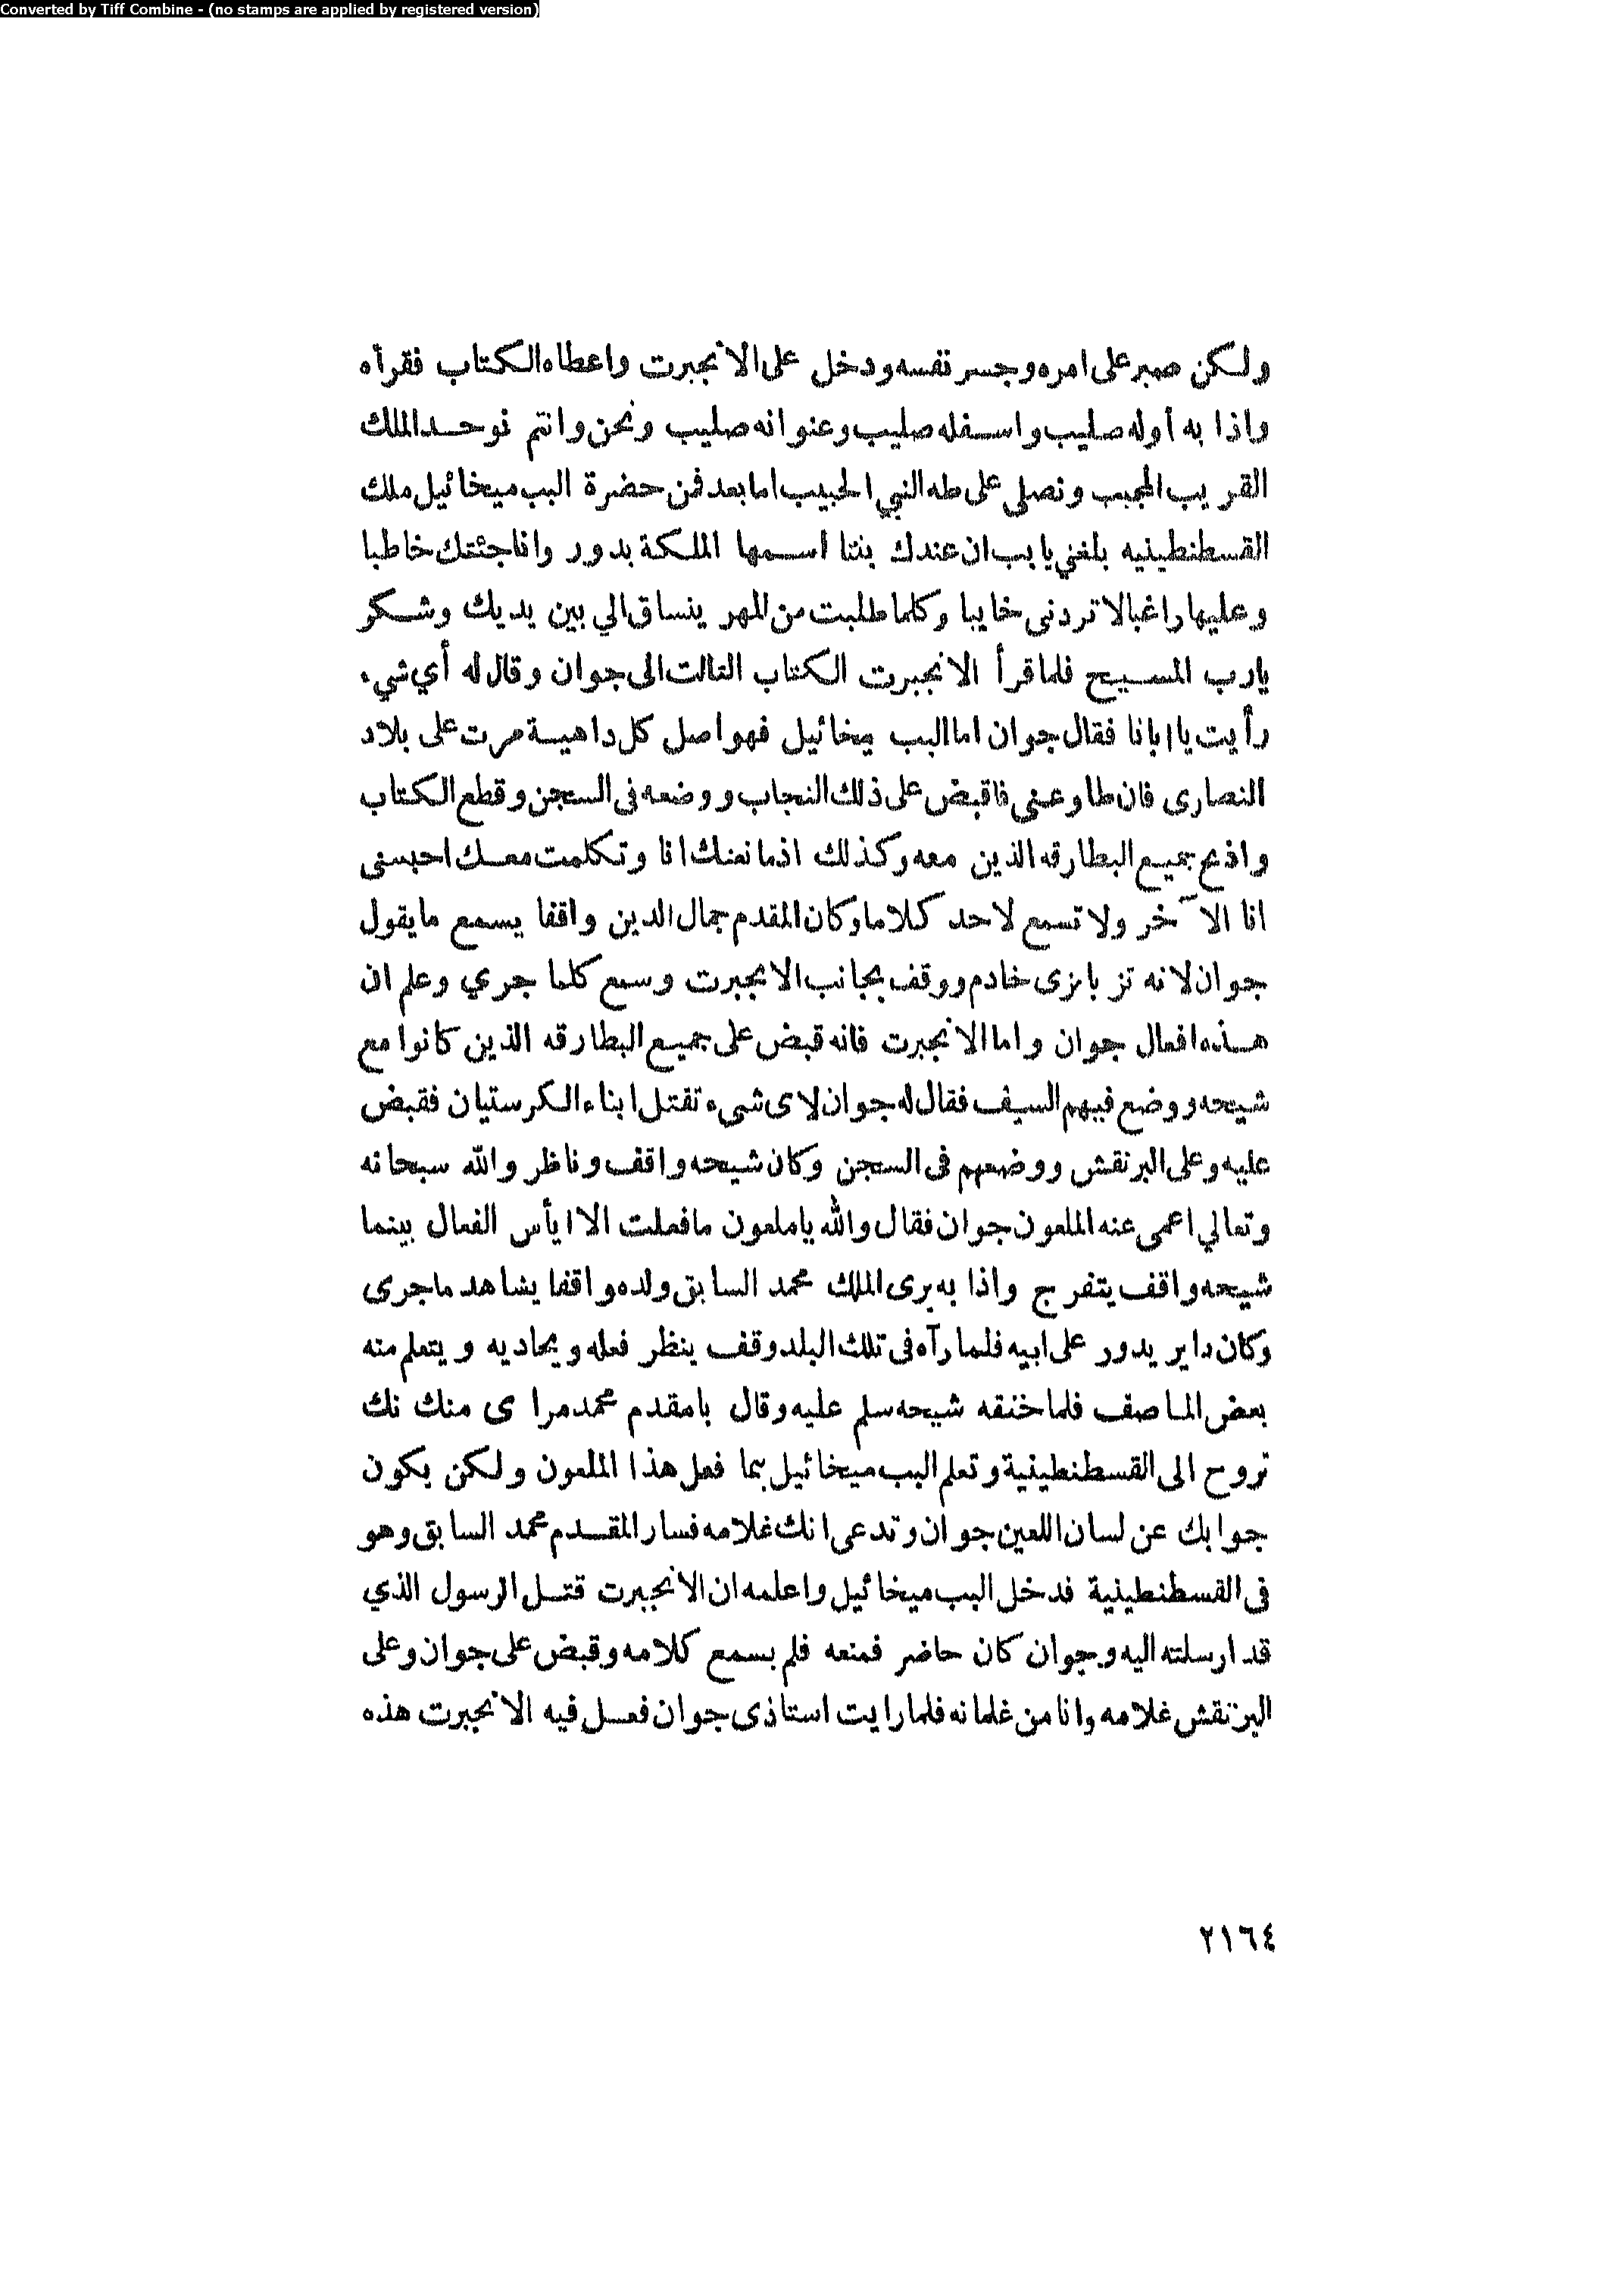 Converted by Tiff Combine - (no stamps are applied by registered version)
ولكن صبر على امره وجسر نفسه ودخل على الانجبرت واعطاه الكتاب فقرأه
واذا به أوله صليب واسفله صليب وعنوانه صليب ونحن وانتم نوحد الملك
القريب المجيب ونصلى على طه النبي الحبيب اما بعد فمن حضرة البب ميخائيل ملك
القسطنطينيه بلغني يا بب ان عندك بنتا اسمها الملكة بدور وانا جئتك خاطبا
وعليها راغبا لا تردنى خايبا وكلما طلبت من المهر ينساق الي بين يديك وشكر
يارب المسيح فلما قرأ الانجبرت الكتاب التالت الى جوان وقال له أي شيء
رأيت يا ابانا فقال جوان اما البب ميخائيل فهو اصل كل داهية مرت على بلاد
النصارى فان طاوعنى فاقبض على ذلك النجاب ووضعه فى السجن وقطع الكتاب
واذبح جميع البطارقه الذين معه وكذلك اذ مانعتك انا وتكلمت معك احبسنى
انا الآخر ولا تسمع لاحد كلاما وكان المقدم جمال الدين واقفا يسمع ما يقول
جوان لانه تزيا بزى خادم ووقف بجانب الانجبرت وسمع كلما جري وعلم ان
هذه افعال جوان واما الانجبرت فانه قبض على جميع البطارقه الذين كانوا مع
شيحه ووضع فيهم السيف فقال له جوان لاى شىء تقتل ابناء الكرستيان فقبض
عليه وعلى البرتقش ووضعهم فى السجن وكان شيحه واقف وناظر والله سبحانه
وتعالي اعمى عنه الملعون جوان فقال والله يا ملعون ما فعلت الا ايأس الفعال بينما
شيحه واقف يتفرج واذا به يرى الملك محمد السابق ولده واقفا يشاهد ما جرى
وكان داير يدور على ابيه فلما رآه فى تلك البلد وقف ينظر فعله ويحاديه ويتعلم منه
بعض الماصف فلما خنقه شيحه سلم عليه وقال بامقدم محمد مراى منك نك
تروح الى القسطنطينية وتعلم البب ميخائيل بما فعل هذا الملعون ولكن يكون
جوابك عن لسان اللعين جوان وتدعى انك غلامه فسار المقدم محمد السابق وهو
فى القسطنطينية فدخل البب ميخائيل واعلمه ان الانجبرت قتل الرسول الذي
قد ارسلته اليه وجوان كان حاضر فمنعه فلم يسمع كلامه وقبض على جوان وعلى
البرتقش غلامه وانا من غلمانه فلما رايت استاذى جوان فعل فيه الانجبرت هذه
٢١٦٤